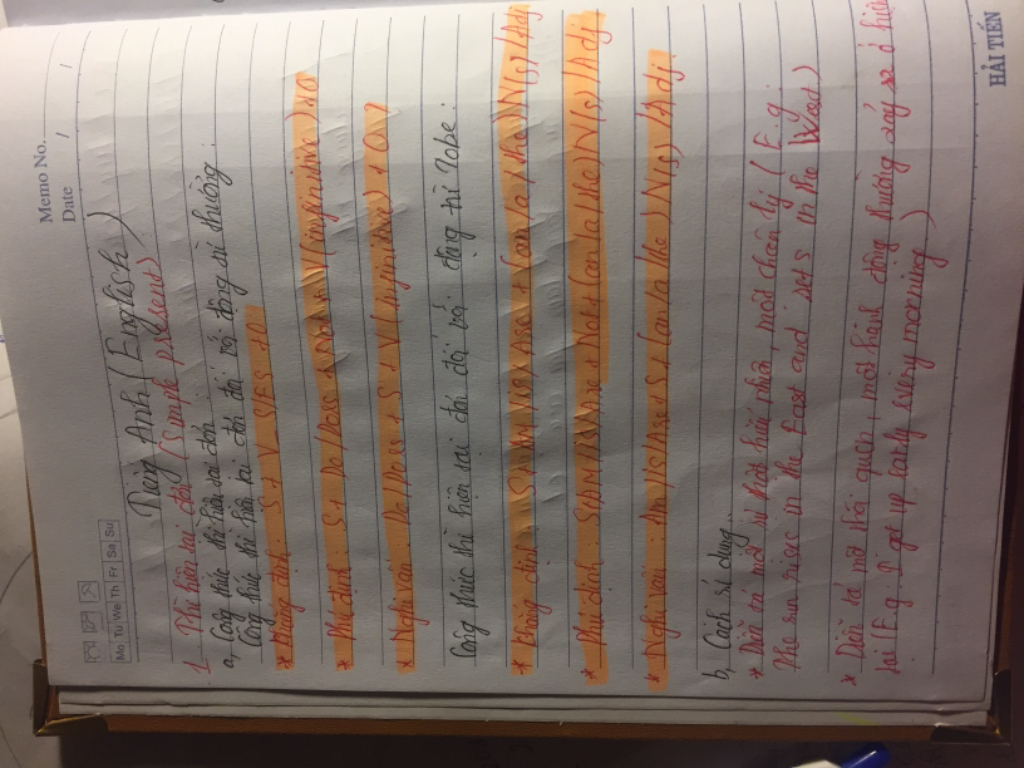 Memo No.
Date / /
Mo Tu We Th Fr Sa Su
Tiếng Anh (English)
1. Thì hiện tại đơn (Simple present)
a, Công thức thì hiện tại đơn
Công thức thì hiện tại đơn đối với động từ thường.
* Khẳng định: S + V_S/ES + O
* Phủ định: S + Do/Does + not + V (infinitive) + O
* Nghi vấn: Do/Does + S + V (infinitive) + O?
Công thức thì hiện tại đơn đối với động từ Tobe.
* Khẳng định: S + AM/IS/Are + (an/a/the) N(s)/Adj
* Phủ định: S + AM/IS/Are + not + (an/a/the) N(s)/Adj
* Nghi vấn: Am/Is/Are + S + (an/a/the) N(s)/Adj.
b, Cách sử dụng.
* Diễn tả một sự thật hiển nhiên, một chân lý (E.g:
The sun rises in the East and sets in the West)
* Diễn tả một thói quen, một hành động thường xảy ra ở hiện
tại (E.g: I get up early every morning)
HẢI TIẾN